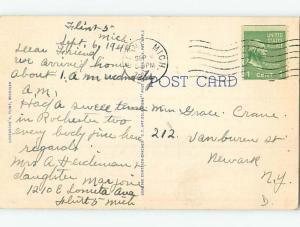 Flint 5
Mich.
Sept. 6, 1944
Dear Friend
we arrived home
about 1. a.m.
A.M,
Had a swell time
in Rochester too
every body fine here
regards
Mrs A. Heideman &
daughter Marjorie
1210 E Lomita Ave
Flint 5 Mich
MICH
SEP
PM
UNITED STATES
POSTAGE
1 CENT
POST CARD
Grace Crane
212. Van buren st
Newark
N.Y.